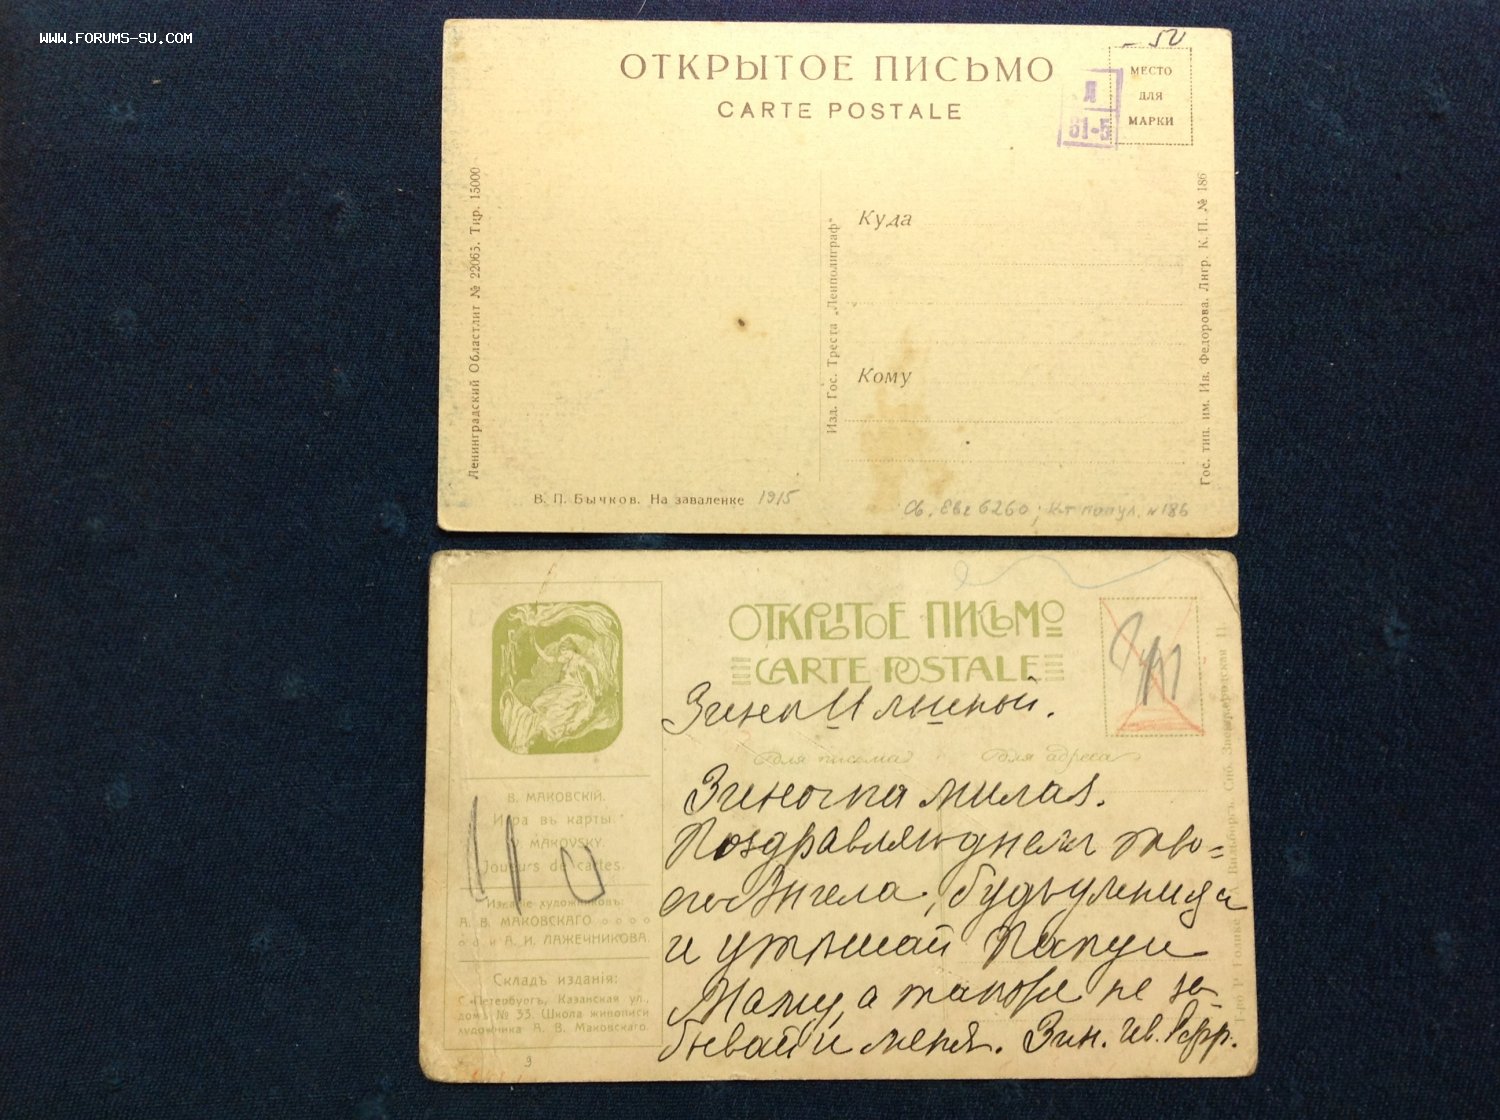 WWW.FORUMS-SU.COM
- 50
ОТКРЫТОЕ ПИСЬМО
CARTE POSTALE
МЕСТО
ДЛЯ
МАРКИ
Л
61-5
Ленинградский Областлит № 22065. Тир. 15000
Изд. Гос. Треста „Ленполиграф“
Куда
Кому
Гос. тип. им. Ив. Федорова. Лнгр. К. П. № 186
В. П. Бычков. На заваленке 1915
6260; попул. № 186
ОТКРЫТОЕ ПИСЬМО
CARTE POSTALE
Зины Ильиной.
Для письма Для адреса
Зиночка милая.
Поздравляю днем тво=
его Ангела, будь умница
и утешай Папу и
Маму, а также не за-
бывай и меня. Зин. Ив.
В. МАКОВСКІЙ.
Игра въ карты
MAKOVSKY.
Joueurs de cartes.
Изданіе художниковъ:
А. В. МАКОВСКАГО
и А. И. ЛАЖЕЧНИКОВА.
Складъ изданія:
С.-Петербургъ, Казанская ул.,
домъ № 33. Школа живописи
художника А. В. Маковскаго.
9
Т-во Р. Голике и А. Вильборгъ. Спб. Звенигородская 11